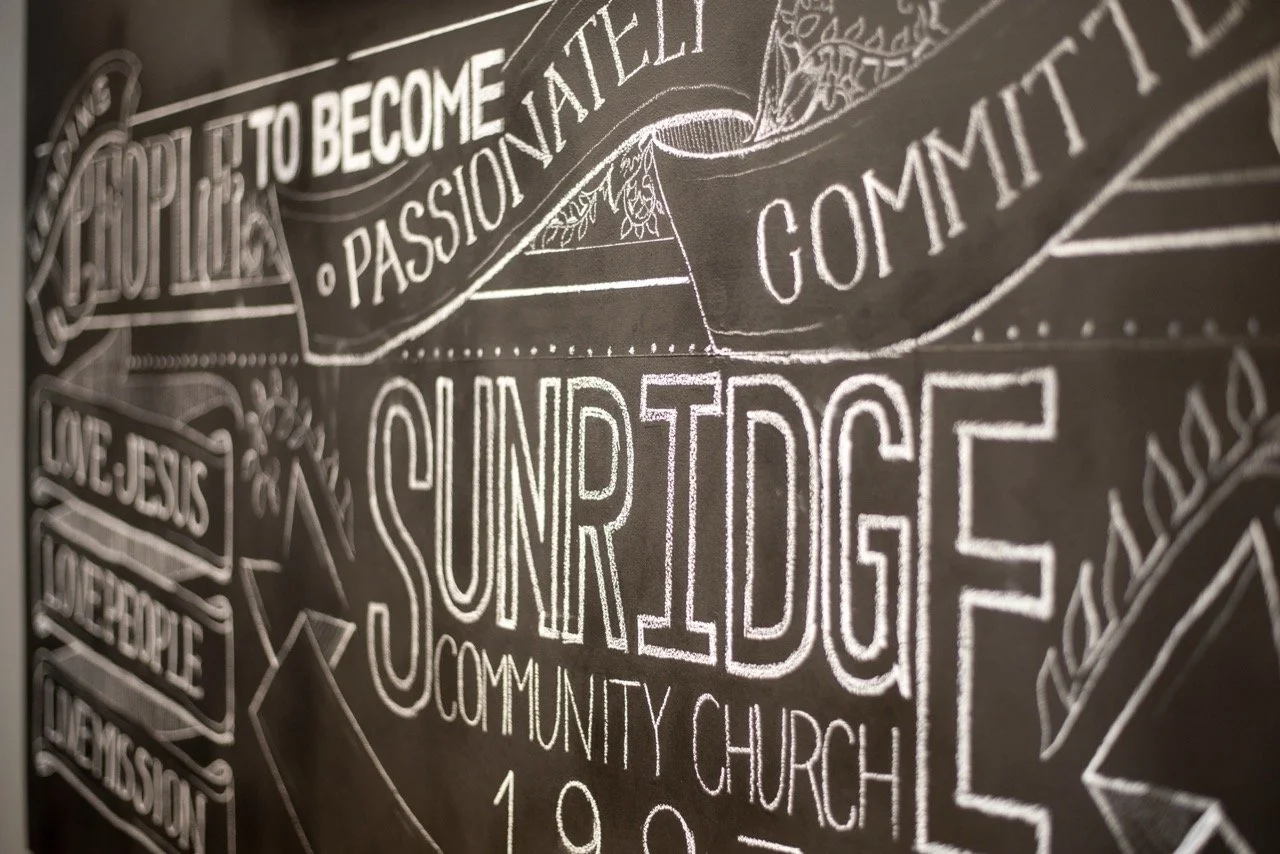 LEADING
PEOPLE TO BECOME
PASSIONATELY
COMMITTE
LOVE JESUS
LOVE PEOPLE
LIVE MISSION
SUNRIDGE
COMMUNITY CHURCH
19